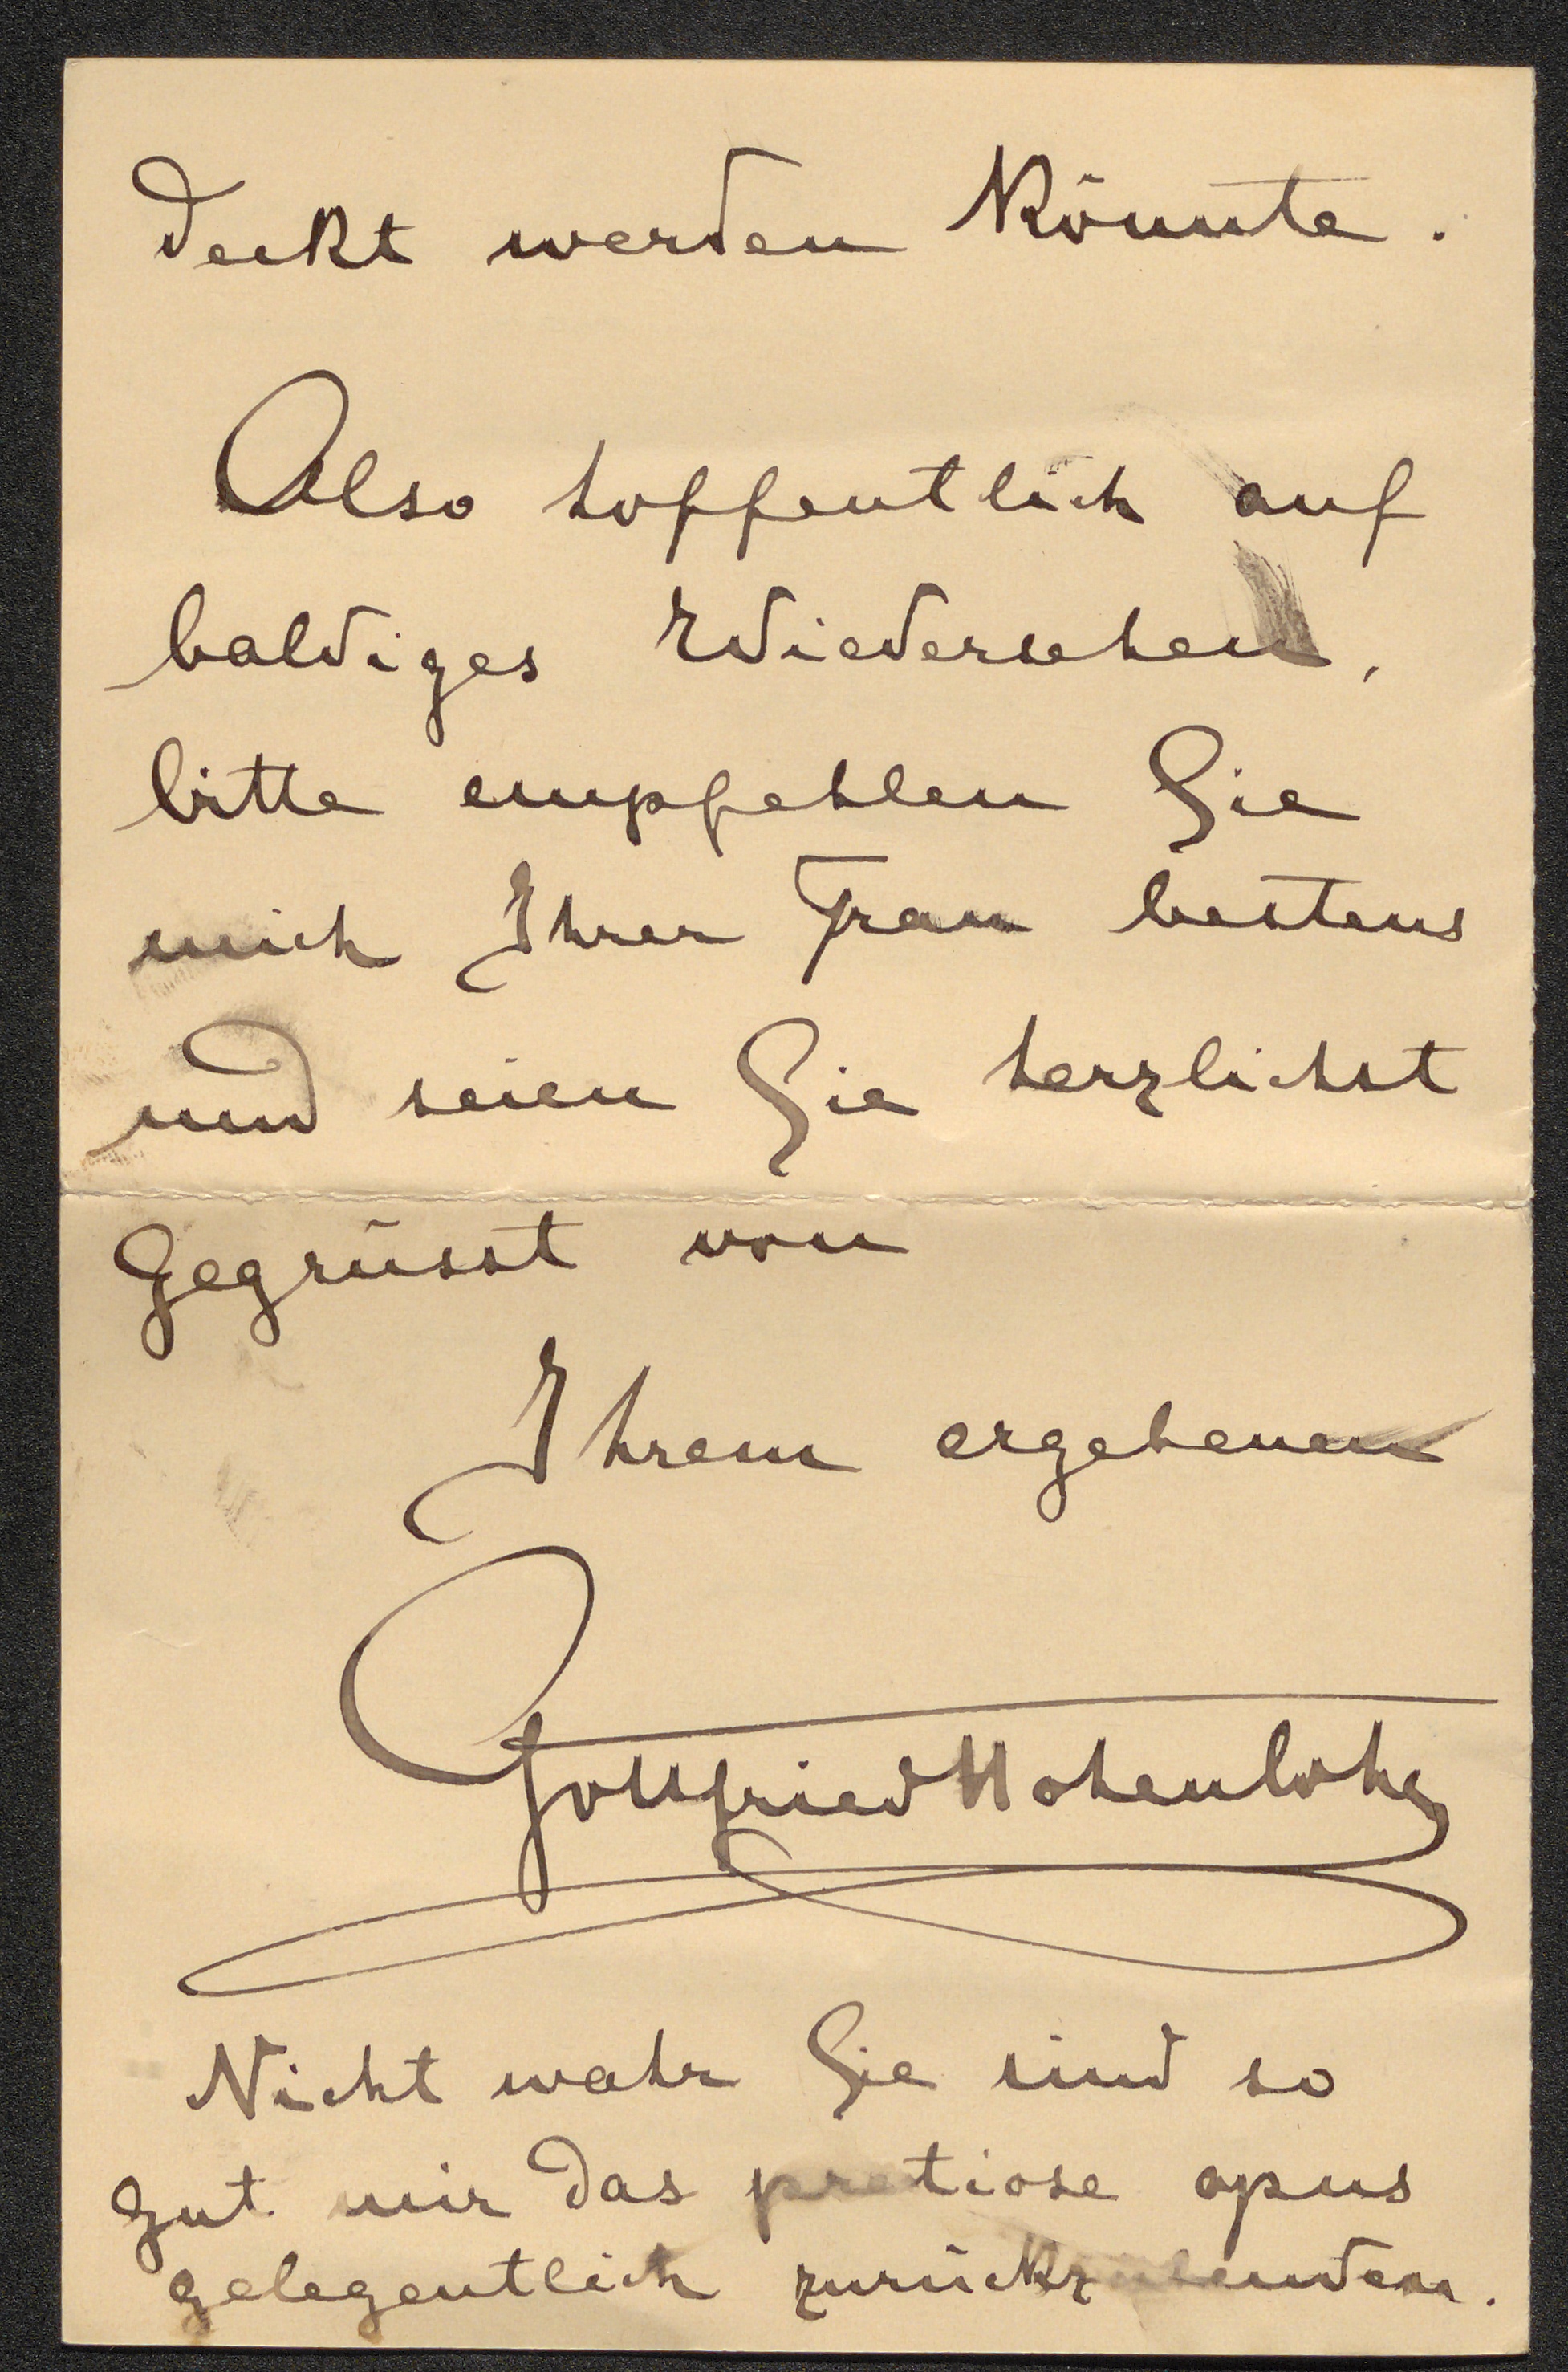 deckt werden könnte.
Also hoffentlich auf
baldiges Wiedersehen,
bitte empfehlen Sie
mich Ihrer Frau bestens
und seien Sie herzlichst
gegrüsst von
Ihrem ergebenen
Gottfried Hohenlohe
Nicht wahr Sie sind so
gut mir das pretiose opus
gelegentlich zurückzusenden.